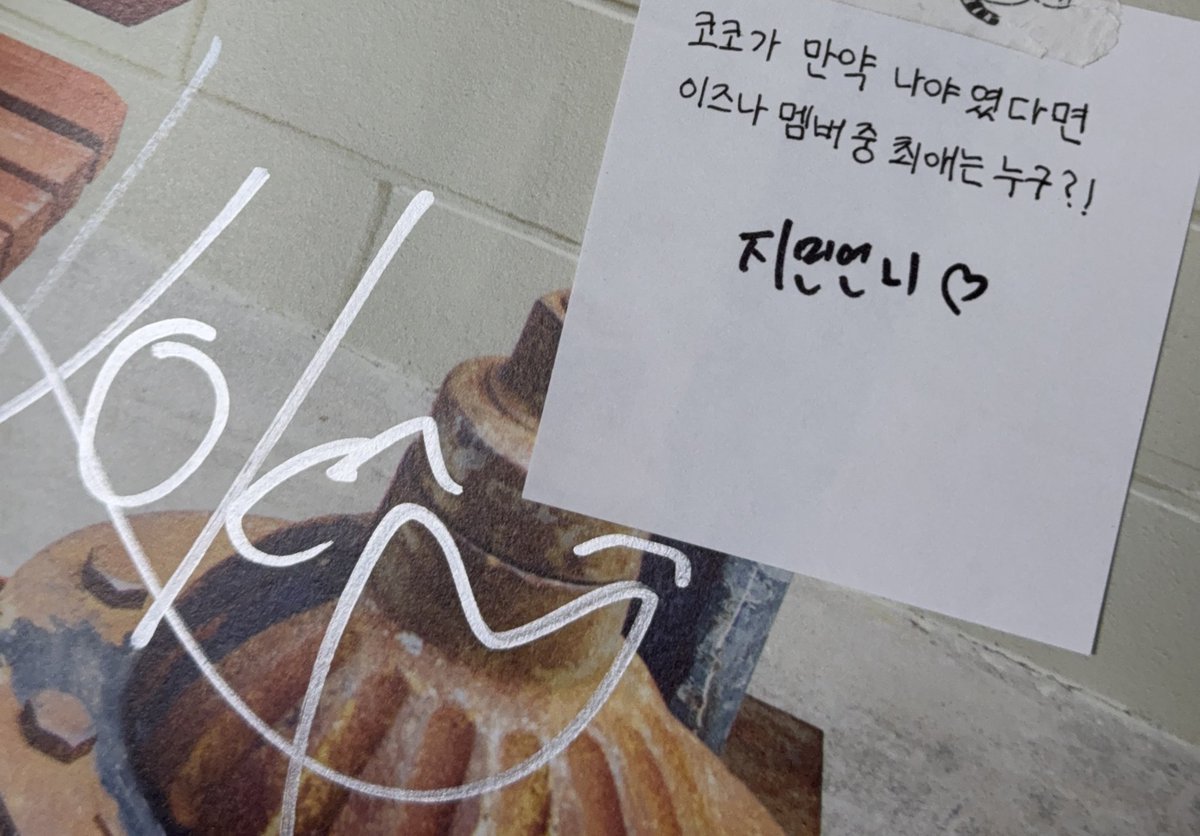 코코가 만약 나야였다면
이즈나 멤버중 최애는 누구?!
지민언니♡